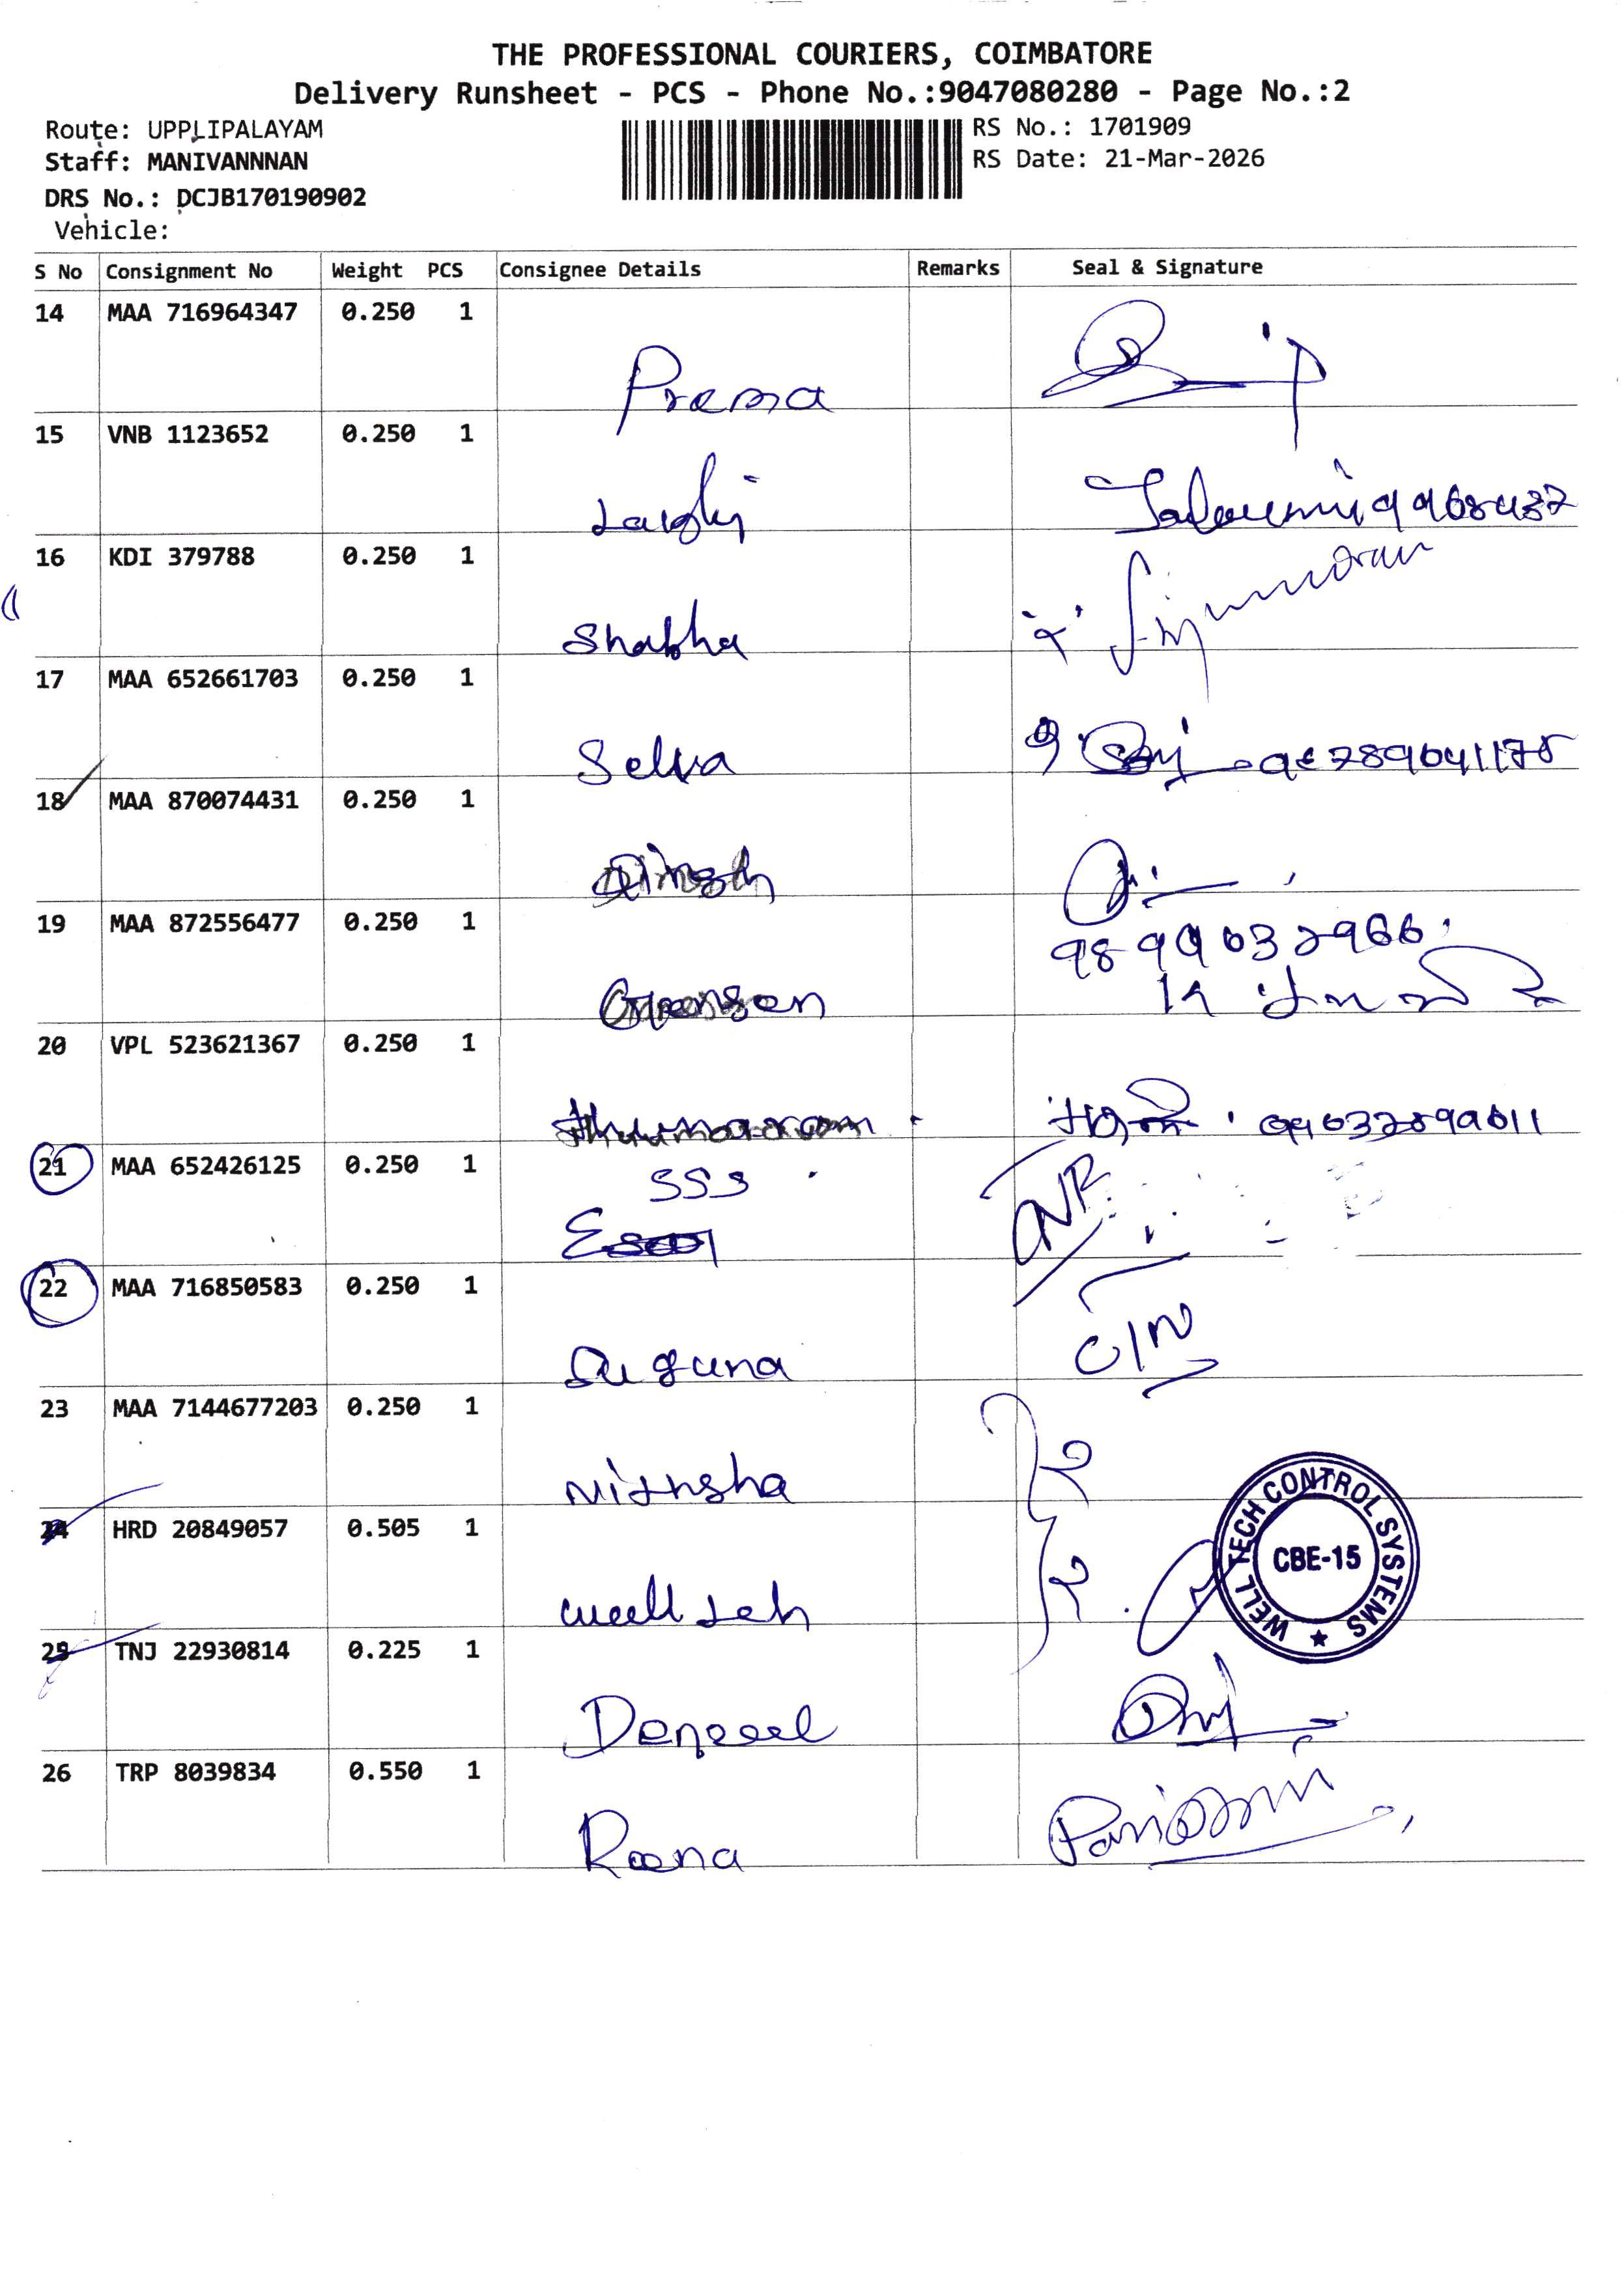 THE PROFESSIONAL COURIERS, COIMBATORE
Delivery Runsheet - PCS - Phone No.:9047080280 - Page No.:2
Route: UPPLIPALAYAM
RS No.: 1701909
Staff: MANIVANNNAN
RS Date: 21-Mar-2026
DRS No.: DCJB170190902
Vehicle:
S No Consignment No Weight PCS Consignee Details Remarks Seal & Signature
14 MAA 716964347 0.250 1
Prema
15 VNB 1123652 0.250 1
16 KDI 379788 0.250 1
Shabha
17 MAA 652661703 0.250 1
Selva
18 MAA 870074431 0.250 1
Dinesh
19 MAA 872556477 0.250 1
20 VPL 523621367 0.250 1
21 MAA 652426125 0.250 1
SSS
22 MAA 716850583 0.250 1
Suguna
23 MAA 7144677203 0.250 1
Nithsha
24 HRD 20849057 0.505 1
Well Teh
WELL TECH CONTROL SYSTEMS
CBE-15
25 TNJ 22930814 0.225 1
26 TRP 8039834 0.550 1
Reena